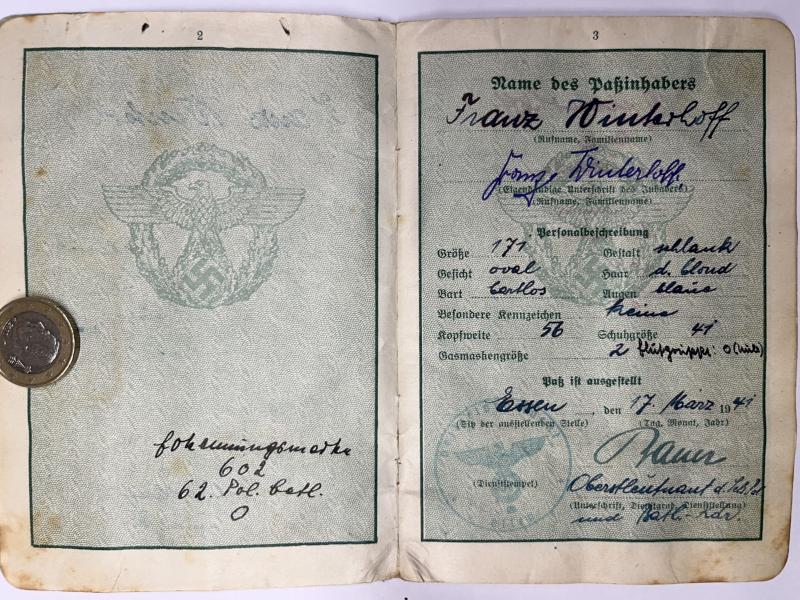 2
Erkennungsmarke
602
62. Pol. Batl.
O
3
Name des Paßinhabers
Franz Winterhoff
(Rufname, Familienname)
Franz Winterhoff
(Eigenhändige Unterschrift des Inhabers)
(Rufname, Familienname)
Personalbeschreibung
Größe 171 Gestalt schlank
Gesicht oval Haar d. blond
Bart bartlos Augen blau
Besondere Kennzeichen keine
Kopfweite 56 Schuhgröße 41
Gasmaskengröße 2 Blutgruppe: O (null)
Paß ist ausgestellt
Essen, den 17. März 1941
(Sitz der ausstellenden Stelle) (Tag, Monat, Jahr)
Bauer
(Dienststempel) Oberstleutnant d.
(Unterschrift, Dienstgrad, Dienststellung)
und Batl.-Kdr.